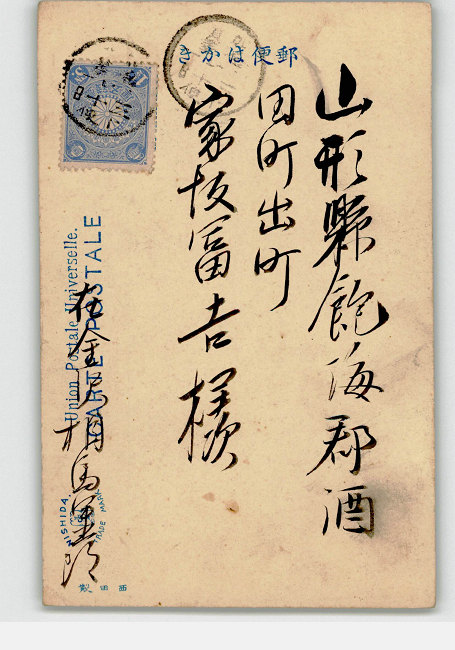 郵便はかき
山形縣飽海郡酒
田町出町
家坂冨吉様
在金沢相馬里
Union Postale Universelle.
CARTE POSTALE
NISHIDA
TRADE MARK
西田製